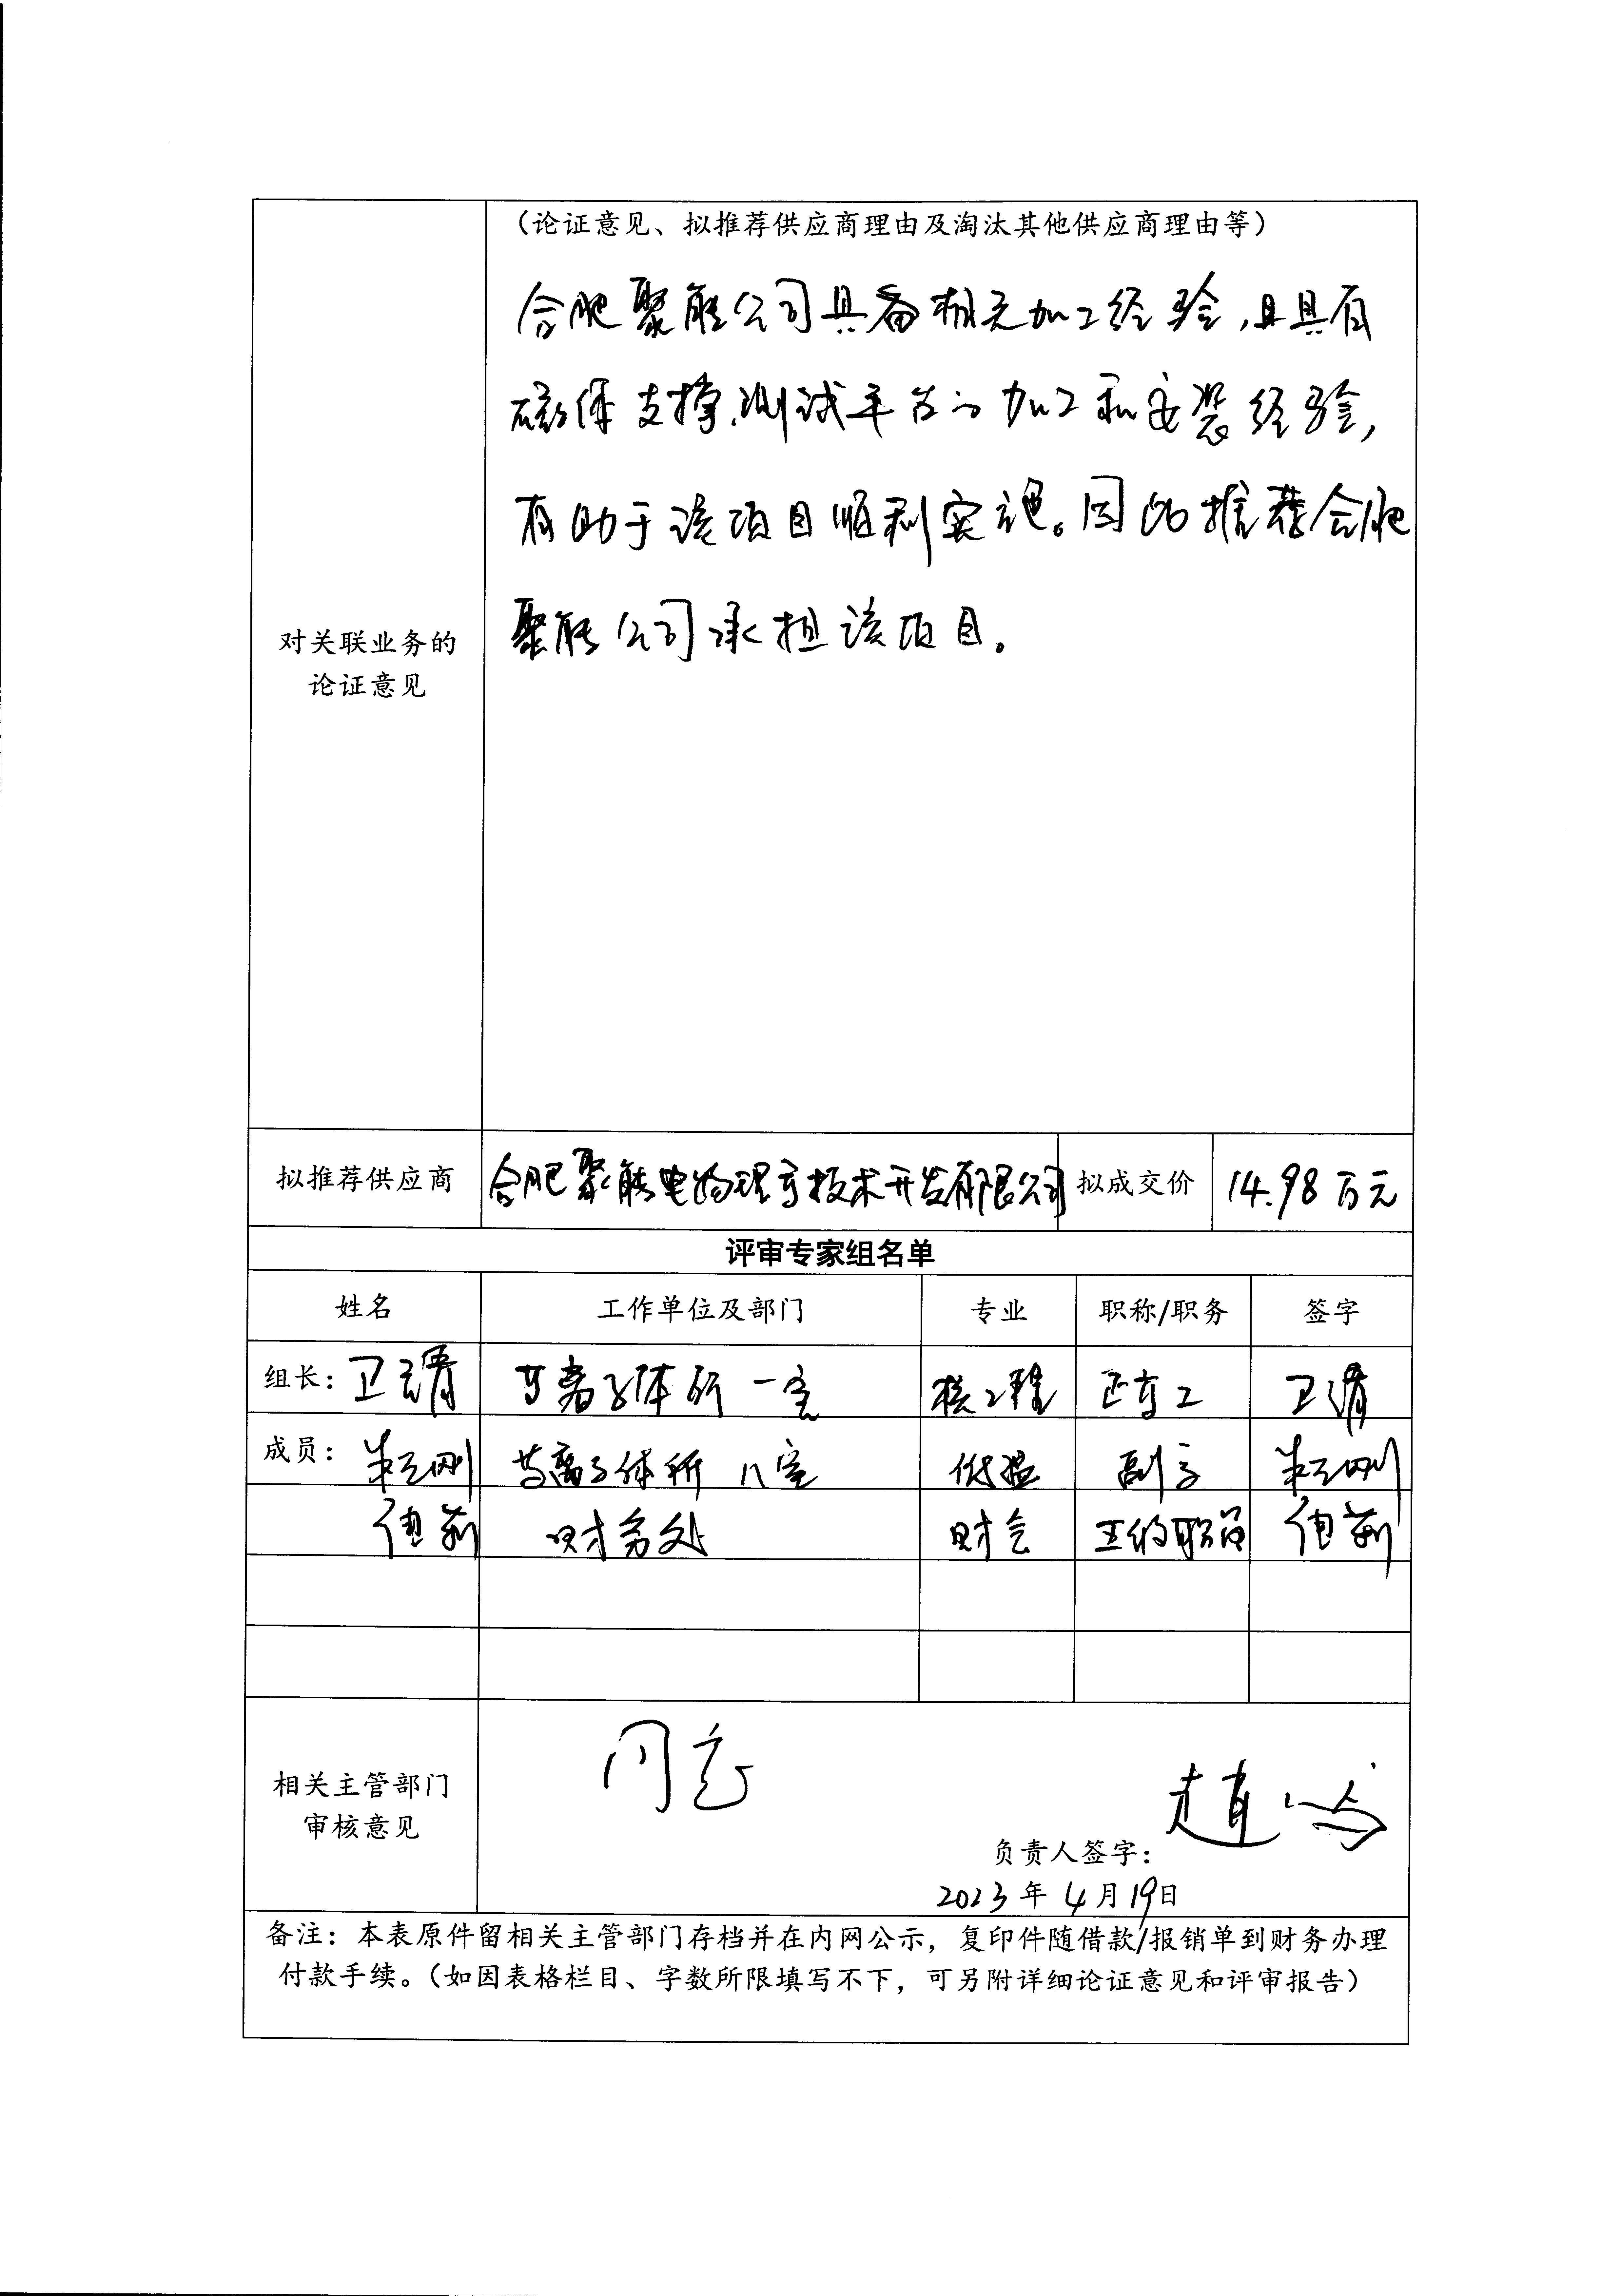 （论证意见、拟推荐供应商理由及淘汰其他供应商理由等）
合肥聚能公司具备相关加工经验，且具有
磁体支撑、测试平台的加工和安装经验，
有助于该项目顺利实施。因此推荐合肥
聚能公司承担该项目。
对关联业务的
论证意见
拟推荐供应商 合肥聚能电物理高技术开发有限公司 拟成交价 14.98万元
评审专家组名单
姓名 工作单位及部门 专业 职称/职务 签字
组长： 等离子体所 一室 核工程 正高工
成员： 等离子体所 八室 低温 副高
财务处 财会 五级职员
同意
相关主管部门
审核意见
负责人签字：
2023年4月19日
备注：本表原件留相关主管部门存档并在内网公示，复印件随借款/报销单到财务办理
付款手续。（如因表格栏目、字数所限填写不下，可另附详细论证意见和评审报告）